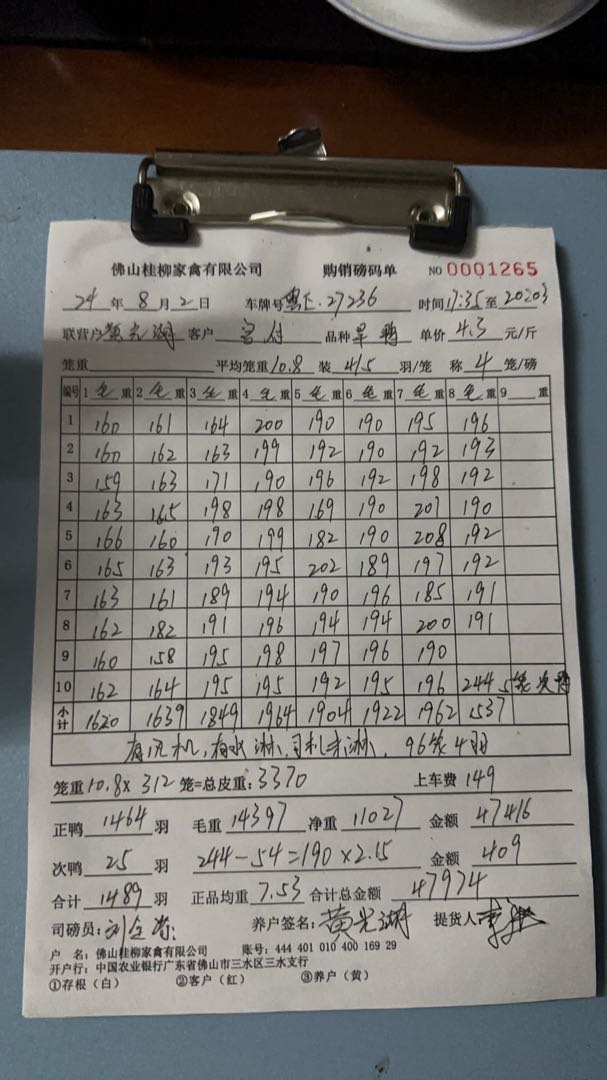 佛山桂柳家禽有限公司 购销磅码单 NO 0001265
24 年 8 月 2 日 车牌号 粤E·27236 时间 17:35 至
联营户 黄光湖 客户 品种 单价 4.3 元/斤
笼重 平均笼重 10.8 装 4/5 羽/笼 称 4 笼/磅
编号 1 毛 重 2 毛 重 3 毛 重 4 毛 重 5 毛 重 6 毛 重 7 毛 重 8 毛 重 9 重
1 160 161 164 200 190 190 195 196
2 160 162 163 199 192 190 192 193
3 159 163 171 190 196 192 198 192
4 163 165 198 198 169 190 207 190
5 166 160 190 199 182 190 208 192
6 165 163 193 195 202 189 197 192
7 163 161 189 194 190 196 185 191
8 162 182 191 196 194 194 200 191
9 160 158 195 198 197 196 190
10 162 164 195 195 192 195 196 244 5笼次鸭
小计 1620 1639 1849 1964 1904 1922 1962 1537
有风机,有水淋,司机未淋, 96笼4羽
笼重 10.8 x 312 笼=总皮重: 3370 上车费 149
正鸭 1464 羽 毛重 14397 净重 11027 金额 47416
次鸭 25 羽 244-54=190×2.15 金额 409
合计 1489 羽 正品均重 7.53 合计总金额 47974
司磅员: 养户签名: 黄光湖 提货人
户 名: 佛山桂柳家禽有限公司 账号: 444 401 010 400 169 29
开户行: 中国农业银行广东省佛山市三水区三水支行
①存根(白) ②客户(红) ③养户(黄)